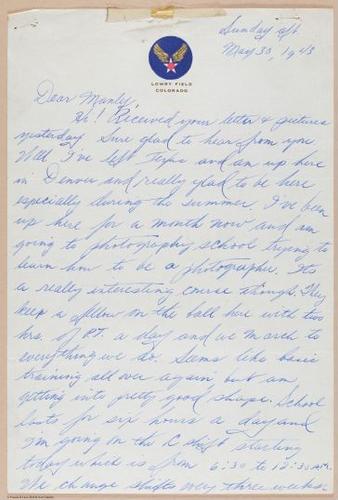 Sunday aft
May 30, 1943
LOWRY FIELD
COLORADO
Dear Manly,
Hi! Received your letter & pictures
yesterday. Sure glad to hear from you.
Well I've left Texas and am up here
in Denver and really glad to be here
especially during the summer. I've been
up here for a month now and am
going to photography school trying to
learn how to be a photographer. Its
a really interesting course though. They
keep a fellow on the ball here with two
hrs. of P.T. a day and we march to
everything we do. Seems like basic
training all over again but am
getting into pretty good shape. School
lasts for six hours a day and
I'm going on the C shift starting
today which is from 6:30 to 12:30 AM.
We change shifts every three weeks so